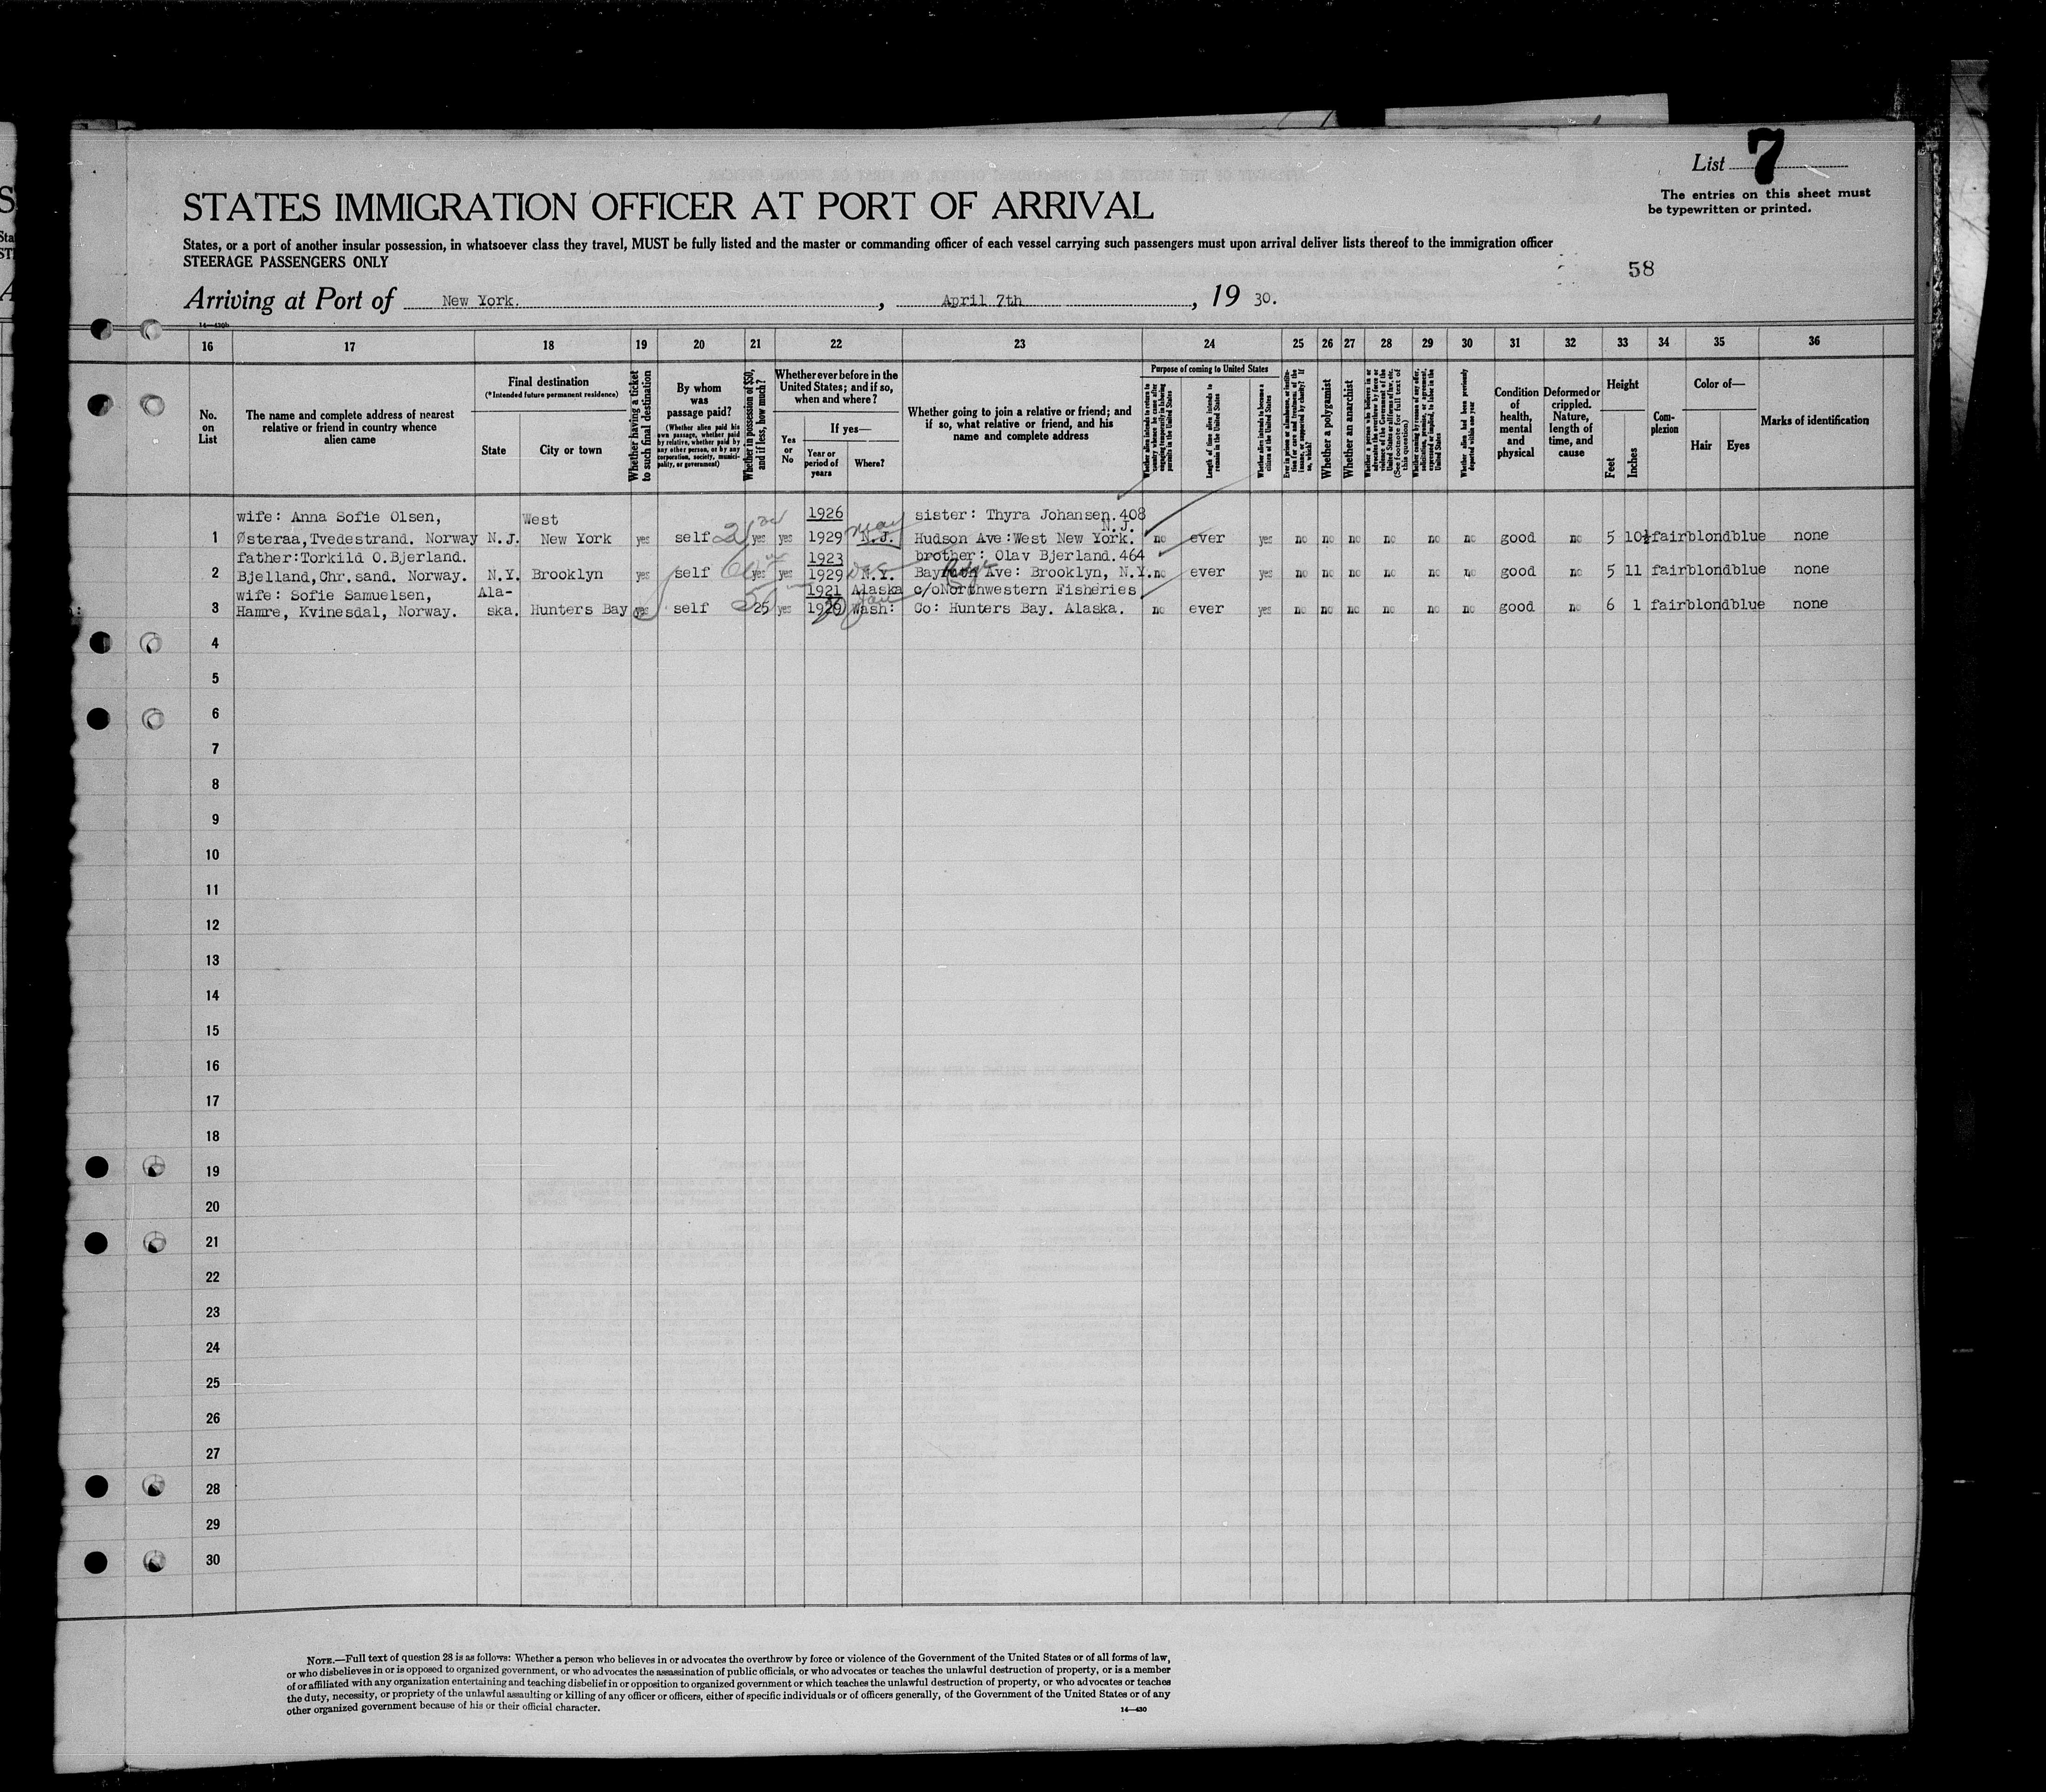 List 7
The entries on this sheet must
be typewritten or printed.
STATES IMMIGRATION OFFICER AT PORT OF ARRIVAL
States, or a port of another insular possession, in whatsoever class they travel, MUST be fully listed and the master or commanding officer of each vessel carrying such passengers must upon arrival deliver lists thereof to the immigration officer
STEERAGE PASSENGERS ONLY
58
Arriving at Port of New York. , April 7th , 19 30.
14—430b
16 17 18 19 20 21 22 23 24 25 26 27 28 29 30 31 32 33 34 35 36
No.
on
List
The name and complete address of nearest
relative or friend in country whence
alien came
Final destination
(*Intended future permanent residence)
State
City or town
Whether having a ticket
to such final destination
By whom
was
passage paid?
(Whether alien paid his
own passage, whether paid
by relative, whether paid by
any other person, or by any
corporation, society, munici-
pality, or government)
Whether in possession of $50,
and if less, how much?
Whether ever before in the
United States; and if so,
when and where?
Yes
or
No
If yes—
Year or
period of
years
Where?
Whether going to join a relative or friend; and
if so, what relative or friend, and his
name and complete address
Purpose of coming to United States
Length of time alien intends to
remain in the United States
Whether alien intends to become a
citizen of the United States
Whether a polygamist
Whether an anarchist
Whether alien had been previously
deported within one year
Condition
of
health,
mental
and
physical
Deformed or
crippled.
Nature,
length of
time, and
cause
Height
Feet
Inches
Com-
plexion
Color of—
Hair
Eyes
Marks of identification
wife: Anna Sofie Olsen, West 1926 sister: Thyra Johansen. 408
N.J.
1 Østeraa, Tvedestrand. Norway N.J. New York yes self yes yes 1929 May N.J. Hudson Ave: West New York. no ever yes no no no no no no good no 5 10½ fair blond blue none
father: Torkild O. Bjerland. 1923 brother: Olav Bjerland. 464
2 Bjelland, Chr. sand. Norway. N.Y. Brooklyn yes self yes yes 1929 Dec N.Y. Bay Ave: Brooklyn, N.Y. no ever yes no no no no no no good no 5 11 fair blond blue none
wife: Sofie Samuelsen, Ala- 1921 Alaska c/o Northwestern Fisheries
3 Hamre, Kvinesdal, Norway. ska. Hunters Bay yes self 25 yes 1929 Wash: Co: Hunters Bay. Alaska. no ever yes no no no no no no good no 6 1 fair blond blue none
4
5
6
7
8
9
10
11
12
13
14
15
16
17
18
19
20
21
22
23
24
25
26
27
28
29
30
NOTE.—Full text of question 28 is as follows: Whether a person who believes in or advocates the overthrow by force or violence of the Government of the United States or of all forms of law,
or who disbelieves in or is opposed to organized government, or who advocates the assassination of public officials, or who advocates or teaches the unlawful destruction of property, or is a member
of or affiliated with any organization entertaining and teaching disbelief in or opposition to organized government or which teaches the unlawful destruction of property, or who advocates or teaches
the duty, necessity, or propriety of the unlawful assaulting or killing of any officer or officers, either of specific individuals or of officers generally, of the Government of the United States or of any
other organized government because of his or their official character.
14—430